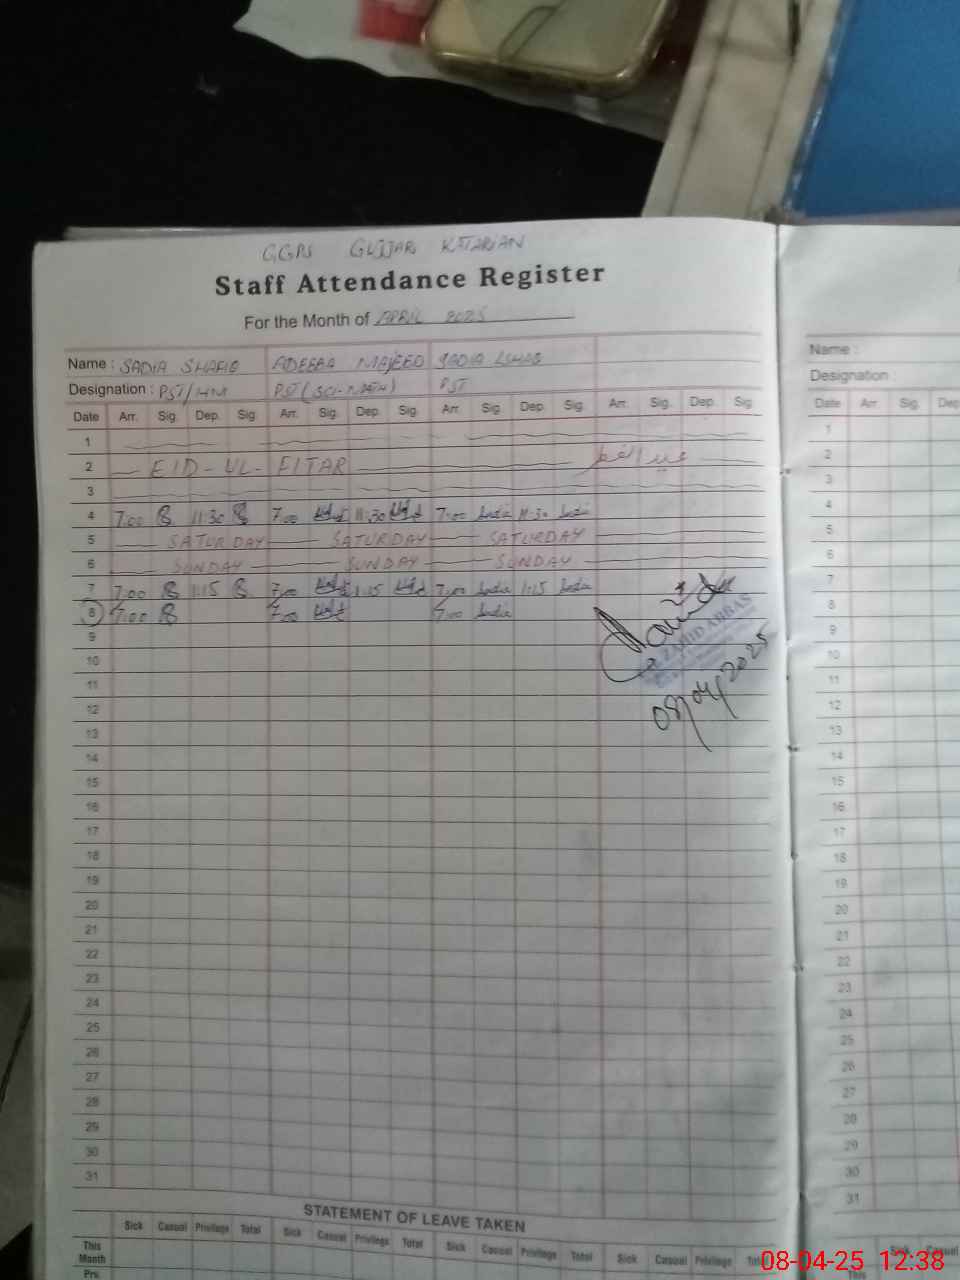 GGPS GUJJAR KATARIAN
Staff Attendance Register
For the Month of APRIL 2025
Name : SADIA SHAFIQ ADEEBA MAJEED SADIA ISHAQ
Designation : PST/HM PST (SCI-MATH) PST
Date Arr. Sig. Dep. Sig. Arr. Sig. Dep. Sig. Arr. Sig. Dep. Sig. Arr. Sig. Dep. Sig.
1
2 EID-UL-FITAR عيد الفطر
3
4 7:00 11:30 7:00 11:30 7:00 Sadia 11:30 Sadia
5 SATURDAY SATURDAY SATURDAY
6 SUNDAY SUNDAY SUNDAY
7 7:00 1:15 7:00 1:15 7:00 Sadia 1:15 Sadia
8 7:00 7:00 7:00 Sadia
ZAHID ABBAS
08/04/2025
9
10
11
12
13
14
15
16
17
18
19
20
21
22
23
24
25
26
27
28
29
30
31
STATEMENT OF LEAVE TAKEN
Sick Casual Privilege Total Sick Casual Privilege Total Sick Casual Privilege Total Sick Casual Privilege Total
This
Month
Prv.
Name :
Designation :
Date Arr. Sig. Dep
1
2
3
4
5
6
7
8
9
10
11
12
13
14
15
16
17
18
19
20
21
22
23
24
25
26
27
28
29
30
31
Sick Casual
This
08-04-25 12:38